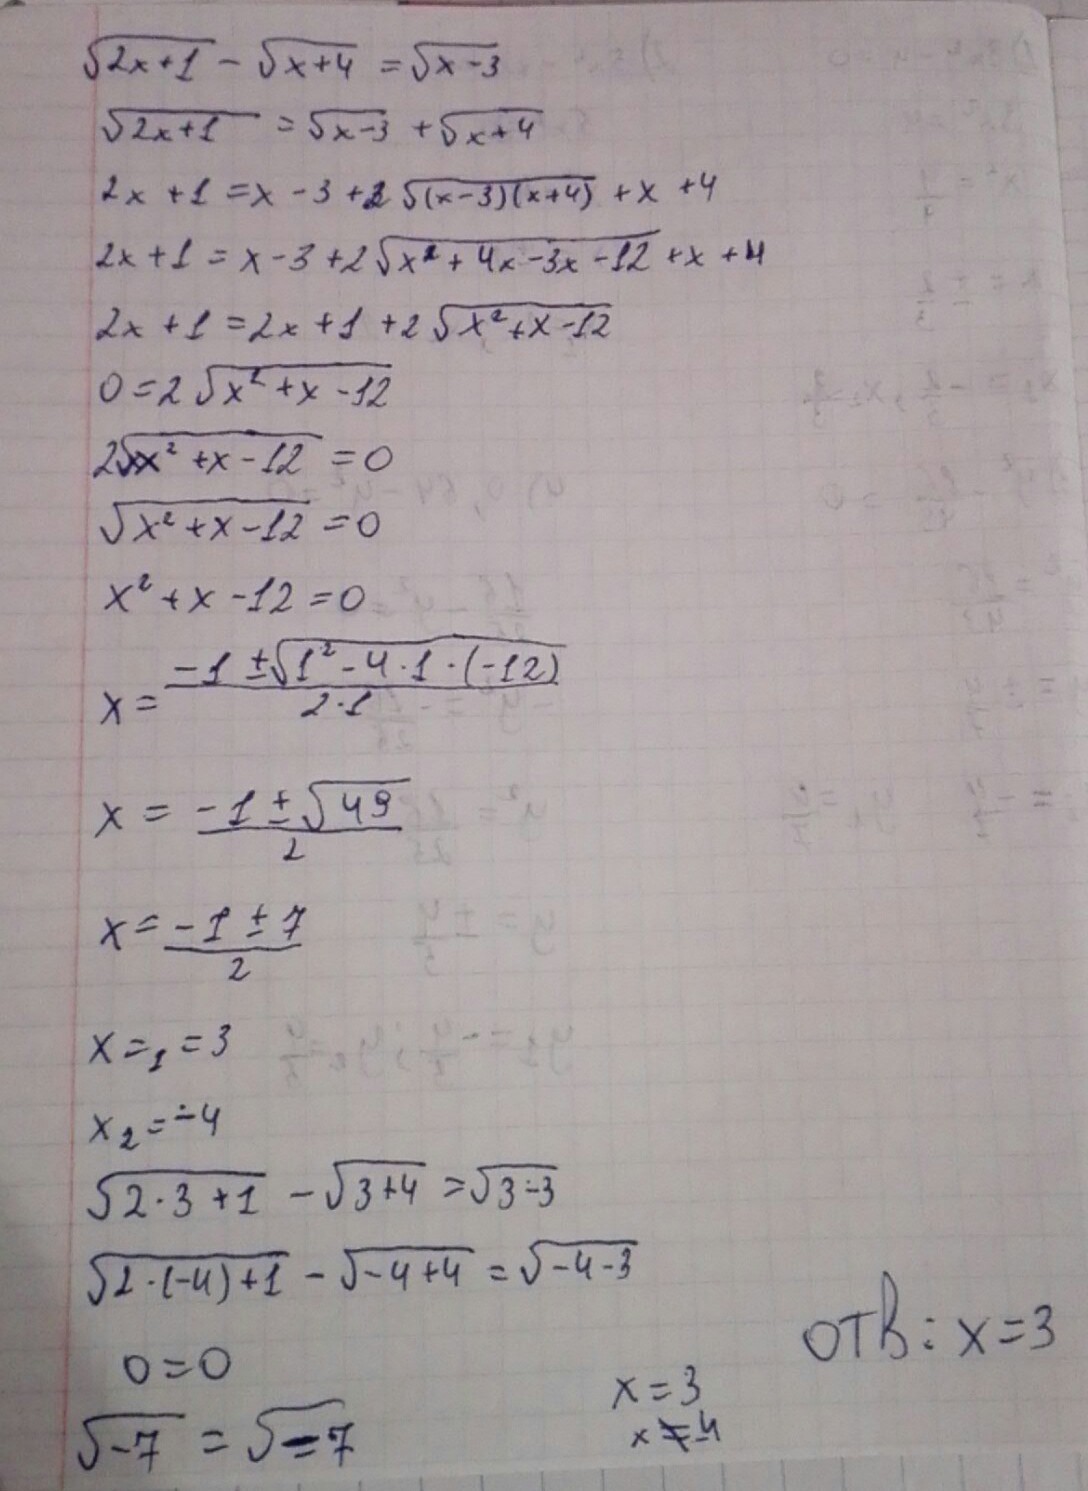 √(2x+1) - √(x+4) = √(x-3)
√(2x+1) = √(x-3) + √(x+4)
2x + 1 = x - 3 + 2√((x-3)(x+4)) + x + 4
2x + 1 = x - 3 + 2√(x² + 4x - 3x - 12) + x + 4
2x + 1 = 2x + 1 + 2√(x² + x - 12)
0 = 2√(x² + x - 12)
2√(x² + x - 12) = 0
√(x² + x - 12) = 0
x² + x - 12 = 0
x = (-1 ± √(1² - 4·1·(-12)))/(2·1)
x = (-1 ± √49)/2
x = (-1 ± 7)/2
x=₁ = 3
x₂ = -4
√(2·3+1) - √(3+4) = √(3-3)
√(2·(-4)+1) - √(-4+4) = √(-4-3)
0 = 0
√-7 = √-7
x = 3
x ≠ -4
ОТВ: x = 3